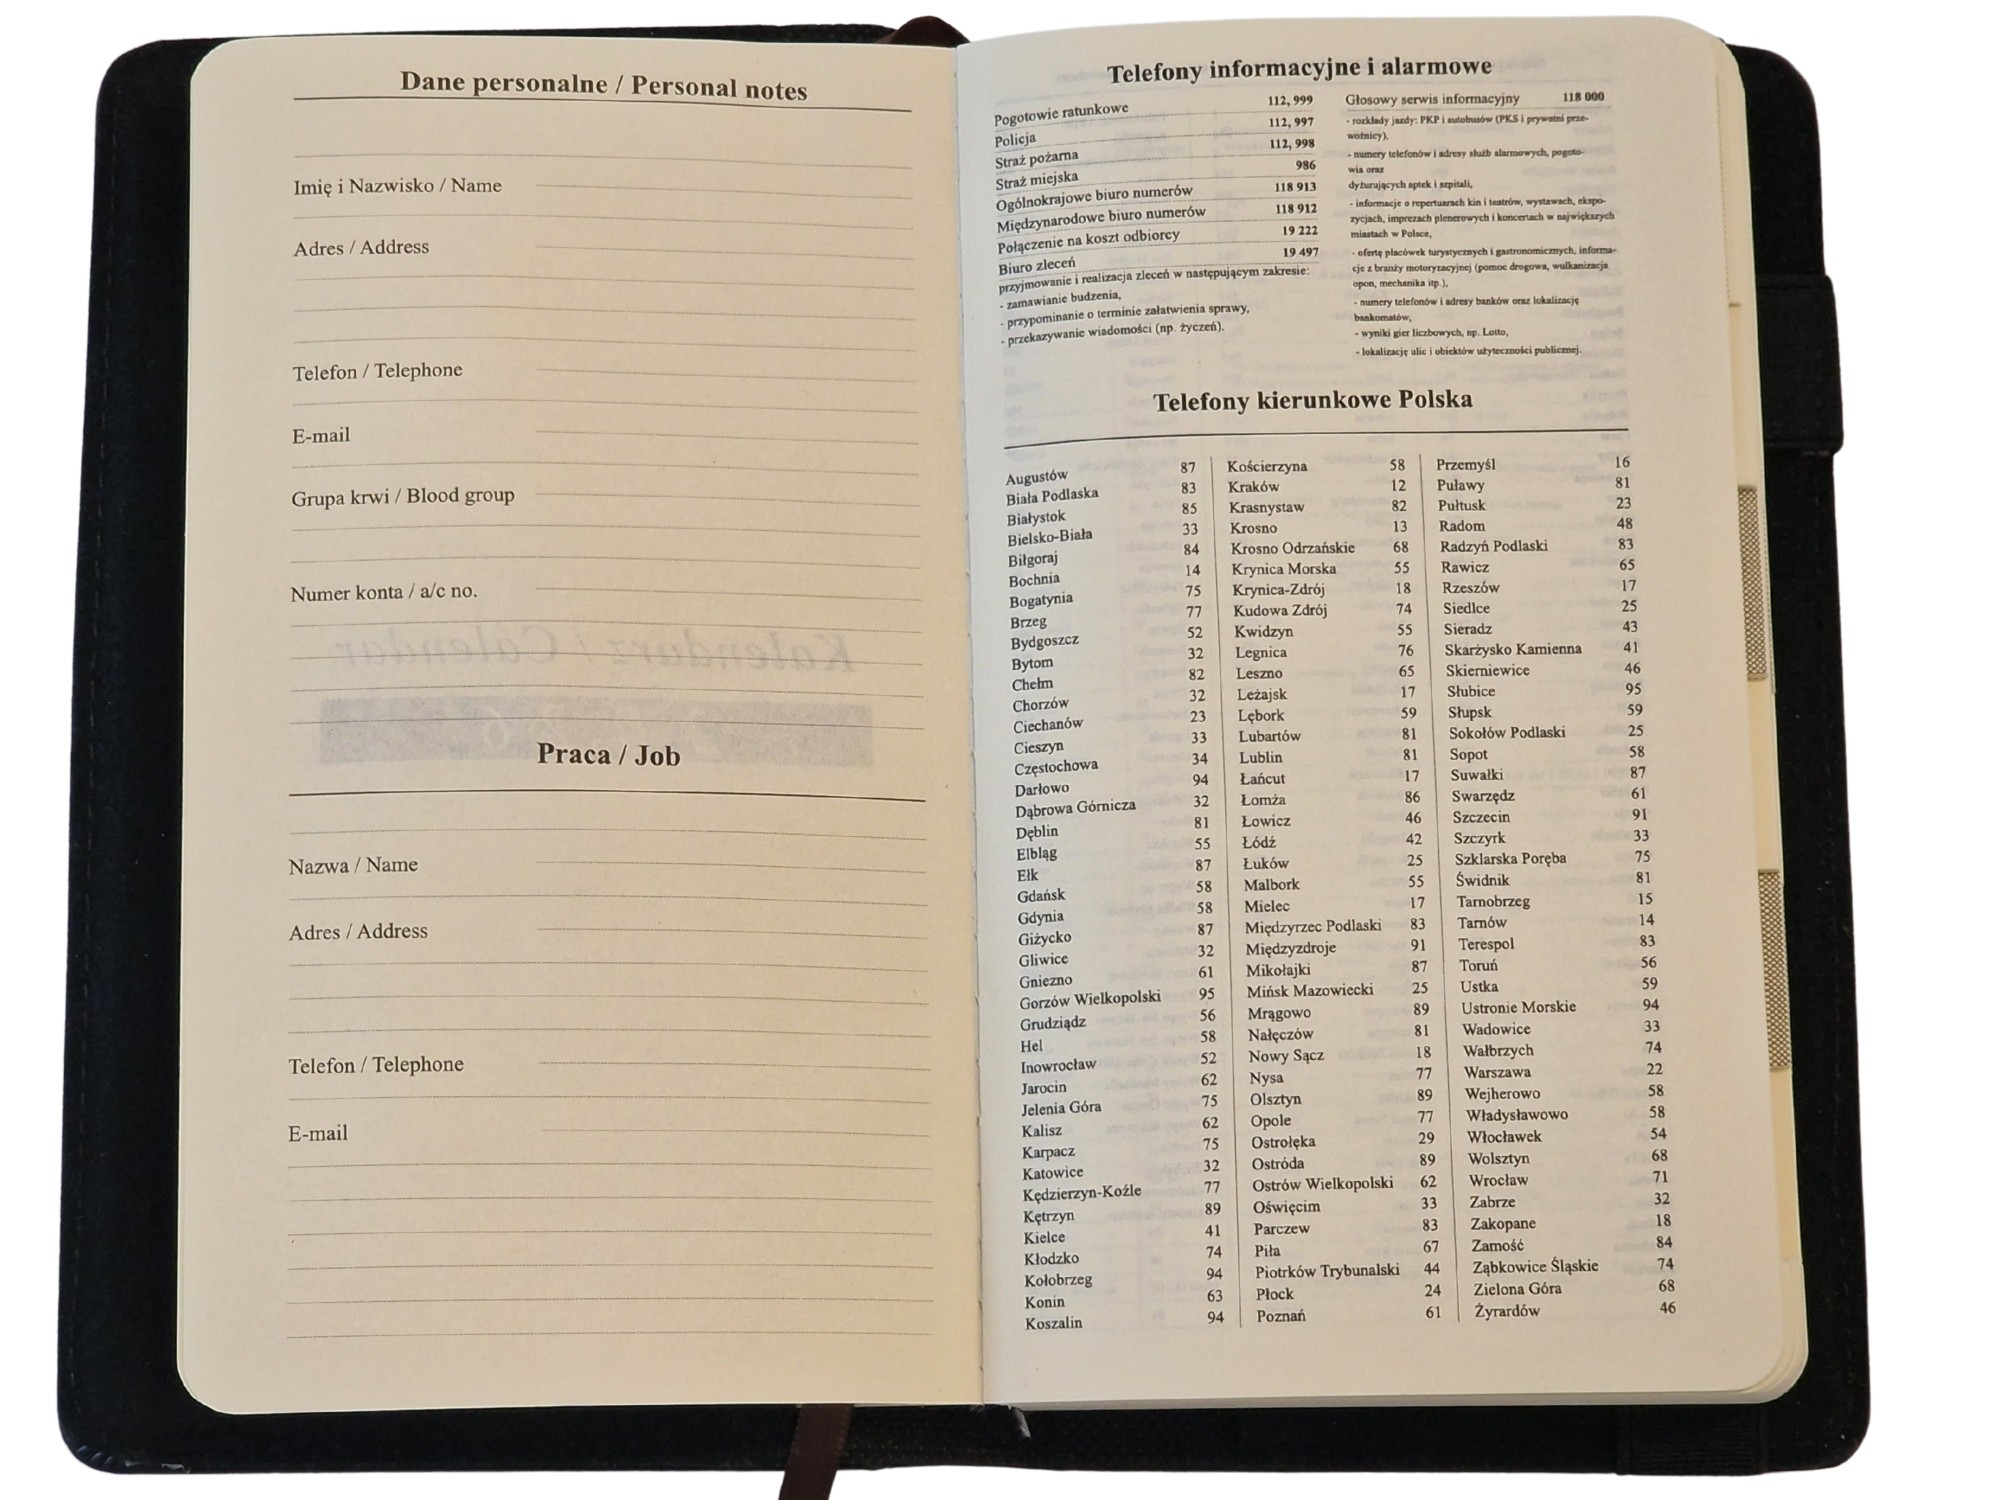 Dane personalne / Personal notes
Imię i Nazwisko / Name
Adres / Address
Telefon / Telephone
E-mail
Grupa krwi / Blood group
Numer konta / a/c no.
Kalendarz / Calendar
Praca / Job
Nazwa / Name
Adres / Address
Telefon / Telephone
E-mail
Telefony informacyjne i alarmowe
Pogotowie ratunkowe 112, 999
Policja 112, 997
Straż pożarna 112, 998
Straż miejska 986
Ogólnokrajowe biuro numerów 118 913
Międzynarodowe biuro numerów 118 912
Połączenie na koszt odbiorcy 19 222
Biuro zleceń 19 497
przyjmowanie i realizacja zleceń w następującym zakresie:
- zamawianie budzenia,
- przypominanie o terminie załatwienia sprawy,
- przekazywanie wiadomości (np. życzeń).
Głosowy serwis informacyjny 118 000
- rozkłady jazdy: PKP i autobusów (PKS i prywatni prze-
woźnicy),
- numery telefonów i adresy służb alarmowych, pogoto-
wia oraz
dyżurujących aptek i szpitali,
- informacje o repertuarach kin i teatrów, wystawach, ekspo-
zycjach, imprezach plenerowych i koncertach w największych
miastach w Polsce,
- ofertę placówek turystycznych i gastronomicznych, informa-
cje z branży motoryzacyjnej (pomoc drogowa, wulkanizacja
opon, mechanika itp.),
- numery telefonów i adresy banków oraz lokalizację
bankomatów,
- wyniki gier liczbowych, np. Lotto,
- lokalizację ulic i obiektów użyteczności publicznej.
Telefony kierunkowe Polska
Augustów 87
Biała Podlaska 83
Białystok 85
Bielsko-Biała 33
Biłgoraj 84
Bochnia 14
Bogatynia 75
Brzeg 77
Bydgoszcz 52
Bytom 32
Chełm 82
Chorzów 32
Ciechanów 23
Cieszyn 33
Częstochowa 34
Darłowo 94
Dąbrowa Górnicza 32
Dęblin 81
Elbląg 55
Ełk 87
Gdańsk 58
Gdynia 58
Giżycko 87
Gliwice 32
Gniezno 61
Gorzów Wielkopolski 95
Grudziądz 56
Hel 58
Inowrocław 52
Jarocin 62
Jelenia Góra 75
Kalisz 62
Karpacz 75
Katowice 32
Kędzierzyn-Koźle 77
Kętrzyn 89
Kielce 41
Kłodzko 74
Kołobrzeg 94
Konin 63
Koszalin 94
Kościerzyna 58
Kraków 12
Krasnystaw 82
Krosno 13
Krosno Odrzańskie 68
Krynica Morska 55
Krynica-Zdrój 18
Kudowa Zdrój 74
Kwidzyn 55
Legnica 76
Leszno 65
Leżajsk 17
Lębork 59
Lubartów 81
Lublin 81
Łańcut 17
Łomża 86
Łowicz 46
Łódź 42
Łuków 25
Malbork 55
Mielec 17
Międzyrzec Podlaski 83
Międzyzdroje 91
Mikołajki 87
Mińsk Mazowiecki 25
Mrągowo 89
Nałęczów 81
Nowy Sącz 18
Nysa 77
Olsztyn 89
Opole 77
Ostrołęka 29
Ostróda 89
Ostrów Wielkopolski 62
Oświęcim 33
Parczew 83
Piła 67
Piotrków Trybunalski 44
Płock 24
Poznań 61
Przemyśl 16
Puławy 81
Pułtusk 23
Radom 48
Radzyń Podlaski 83
Rawicz 65
Rzeszów 17
Siedlce 25
Sieradz 43
Skarżysko Kamienna 41
Skierniewice 46
Słubice 95
Słupsk 59
Sokołów Podlaski 25
Sopot 58
Suwałki 87
Swarzędz 61
Szczecin 91
Szczyrk 33
Szklarska Poręba 75
Świdnik 81
Tarnobrzeg 15
Tarnów 14
Terespol 83
Toruń 56
Ustka 59
Ustronie Morskie 94
Wadowice 33
Wałbrzych 74
Warszawa 22
Wejherowo 58
Władysławowo 58
Włocławek 54
Wolsztyn 68
Wrocław 71
Zabrze 32
Zakopane 18
Zamość 84
Ząbkowice Śląskie 74
Zielona Góra 68
Żyrardów 46